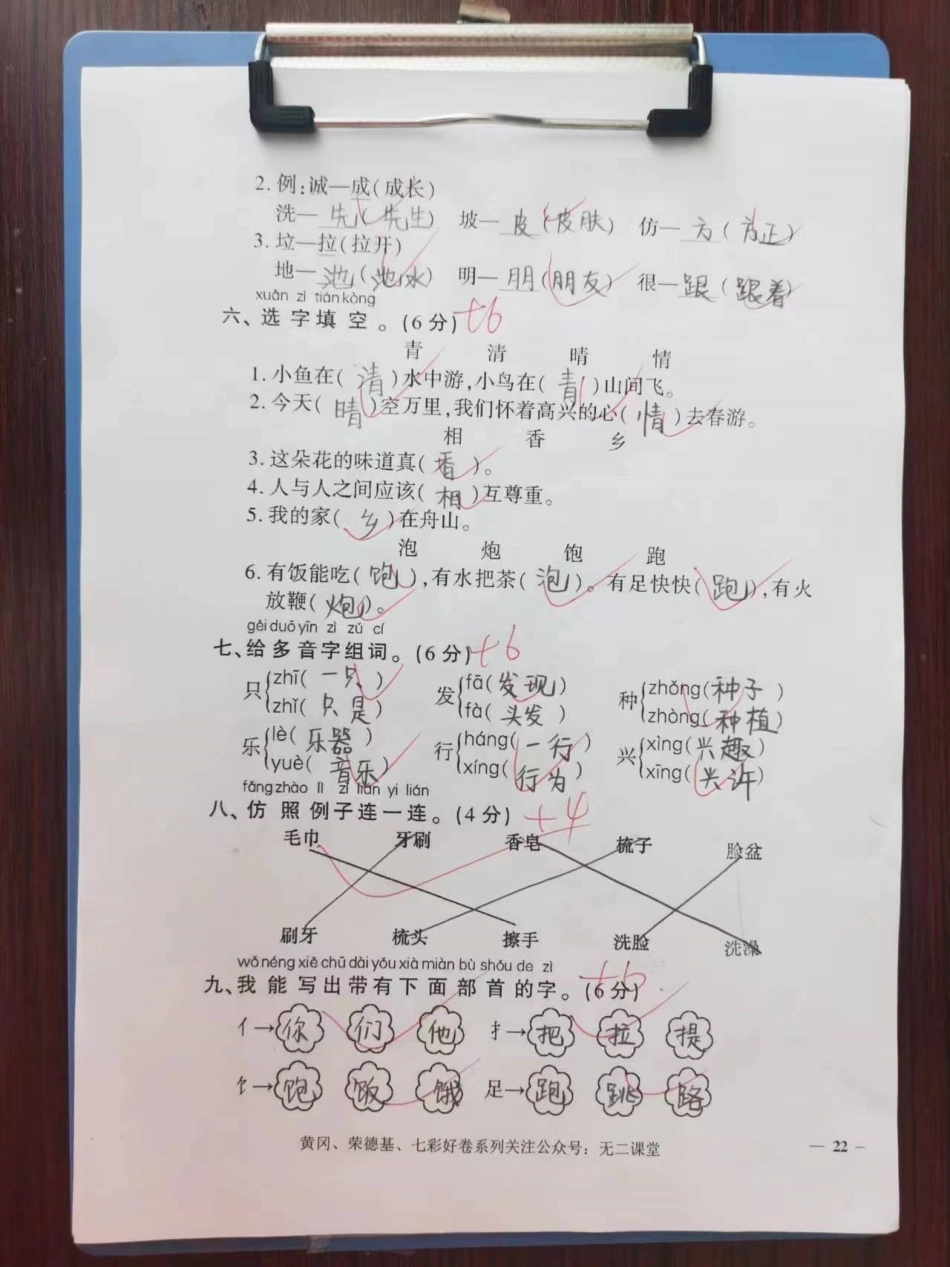 2.例:诚—成(成长)
洗—先(先生) 坡—皮(皮肤) 仿—方(方正)
3.垃—拉(拉开)
地—池(池水) 明—朋(朋友) 很—跟(跟着)
xuǎn zì tián kòng
六、选字填空。(6分) +6
青 清 晴 情
1.小鱼在(清)水中游,小鸟在(青)山间飞。
2.今天(晴)空万里,我们怀着高兴的心(情)去春游。
相 香 乡
3.这朵花的味道真(香)。
4.人与人之间应该(相)互尊重。
5.我的家(乡)在舟山。
泡 炮 饱 跑
6.有饭能吃(饱),有水把茶(泡)。有足快快(跑),有火
放鞭(炮)。
gěi duō yīn zì zǔ cí
七、给多音字组词。(6分) +6
只 zhī(一只) 发 fā(发现) 种 zhǒng(种子)
zhǐ(只是) fà(头发) zhòng(种植)
乐 lè(乐器) 行 háng(一行) 兴 xìng(兴趣)
yuè(音乐) xíng(行为) xīng(兴许)
fǎng zhào lì zi lián yi lián
八、仿照例子连一连。(4分) +4
毛巾 牙刷 香皂 梳子 脸盆
刷牙 梳头 擦手 洗脸 洗澡
wǒ néng xiě chū dài yǒu xià miàn bù shǒu de zì
九、我能写出带有下面部首的字。(6分) +6
亻→你 们 他 扌→把 拉 提
饣→饱 饭 饿 足→跑 跳 路
黄冈、荣德基、七彩好卷系列关注公众号：无二课堂
— 22 —